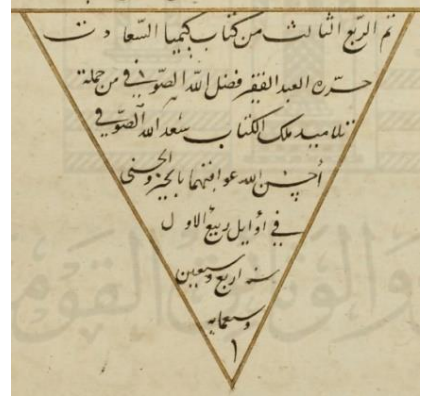 تم الربع الثالث من كتاب كيميا السعادت
حرره العبد الفقير فضل الله الصوفي من جملة
تلاميد ملك الكتاب سعد الله الصوفي
أحسن الله عواقبهما بالخير والحسنى
في أوايل ربيع الاول
سنه اربع وسبعين
وسبعمايه